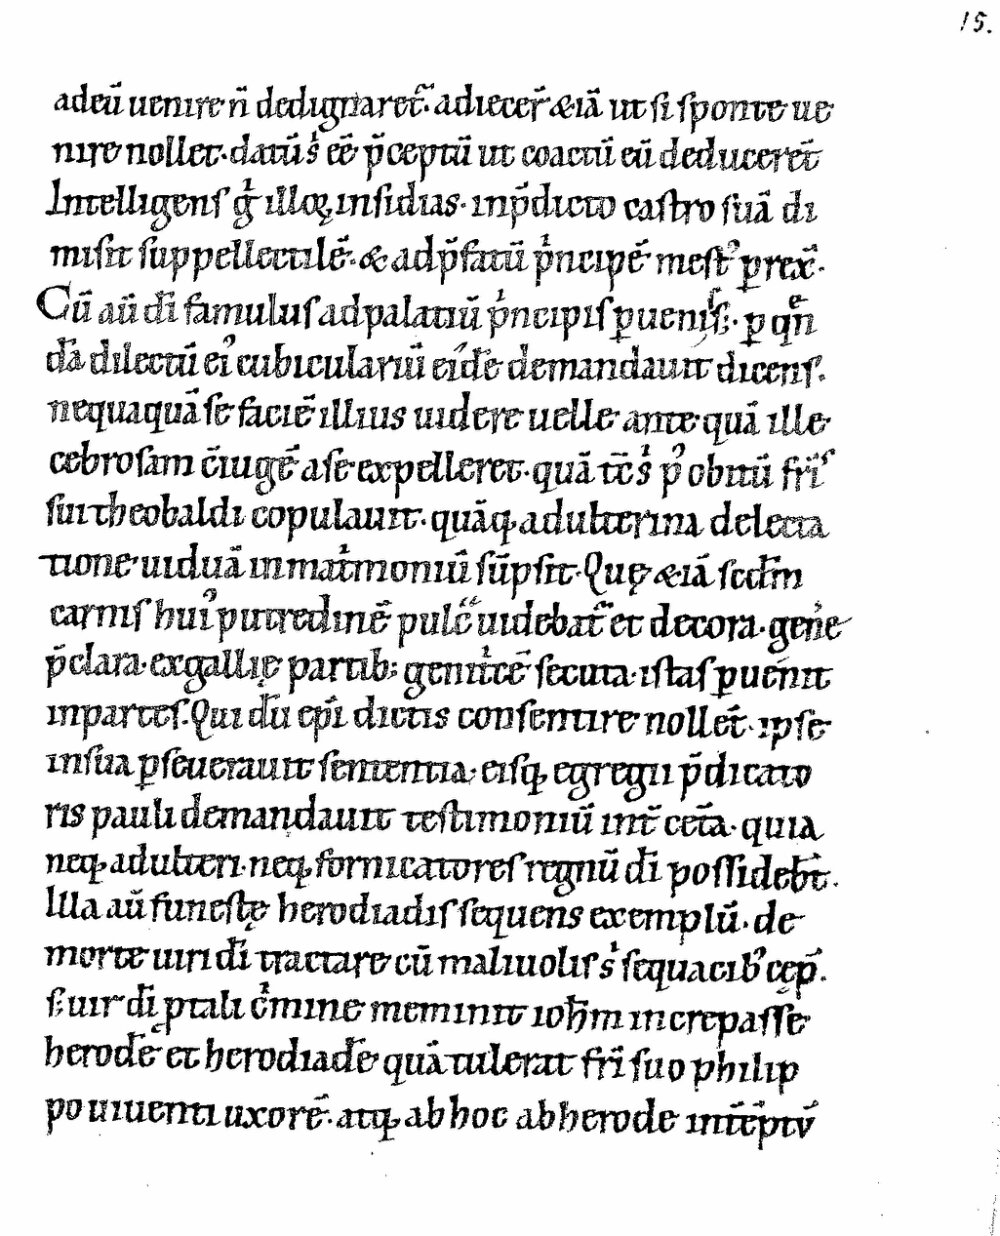 15.
adeū uenire n̄ dedignaret᷑. adiecer̄ & iā ut si sponte ue
nire nollet. datū sⁱ eē p̄ceptū ut coactū eū deduceret̄
Intelligens gⁱ illoꝝ insidias. inp̄dicto castro suā di
misit suppellectilē. & adp̄fatū pⁱncipē mestꝰ ꝑrex̄.
Cū aū dī famulus adpalatiū pⁱncipis ꝑuenisset. ꝑ qn̄
dā dilectū eiꝰ cubiculariū eidē demandauit dicens.
nequaquā se faciē illius uidere uelle antequā ille
cebrosam c̄iugē ase expelleret. quā tc̄ sⁱ pꝰ obitū frīs
sui theobaldi copulauit. quāqꝫ adulterina delecta
tione uiduā inmatⁱmoniū sūpsit. Quę & iā scd̄m
carnis huiꝰ putredinē pulc̄ uidebat᷑ et decora. genēe
p̄clara. exgallię partibꝫ genitⁱcē secuta. istas ꝑuenit
inpartes. Qui dū epī dictis consentire nollet̄. ipse
insua ꝑseuerauit sententia. eisqꝫ egregii p̄dicato
ris pauli demandauit testimoniū int̄ cet̄a. quia
neqꝫ adulteri. neqꝫ fornicatores regnū dī possidebt̄.
Illa aū funestę herodiadis sequens exemplū. de
morte uiri dī tractare cū maliuolis sⁱ sequacibꝰ cęp̄.
sꝫ uir dī ꝑtali cⁱmine meminit ioh̄m increpasse
herodē et herodiadē quā tulerat frī suo philip
po uiuenti uxorē. atqꝫ abhoc abherode int̄ēptū